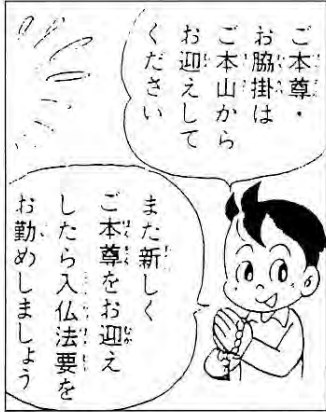 ご本尊・
お脇掛は
ご本山から
お迎えして
ください
また新しく
ご本尊をお迎え
したら入仏法要を
お勤めしましょう